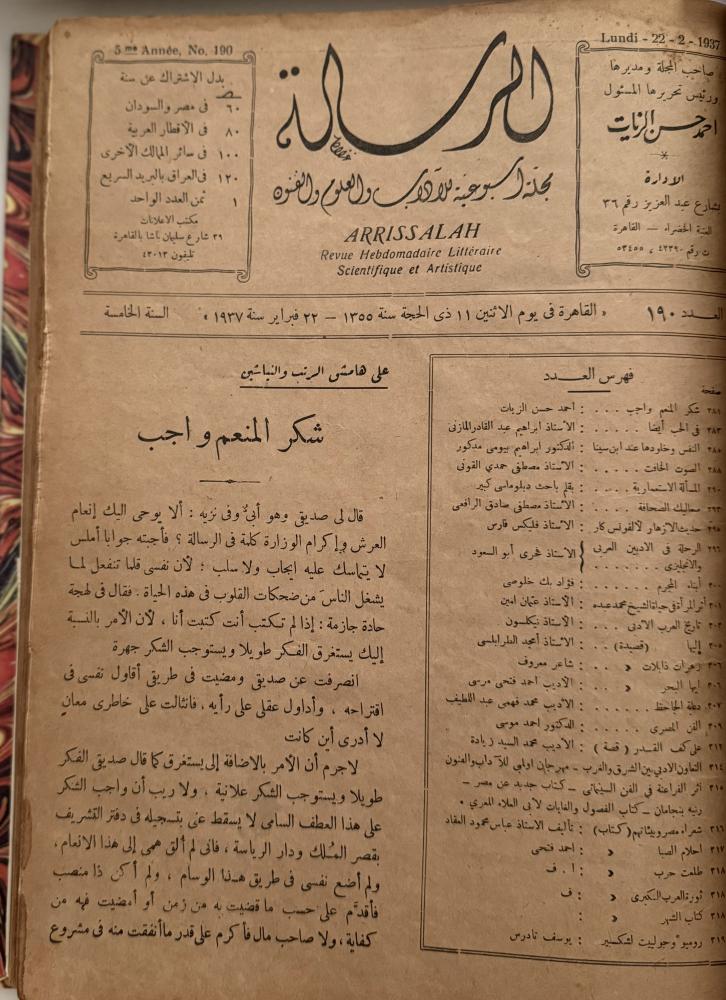 5me Année, No. 190
بدل الاشتراك عن سنة
٦٠ فى مصر والسودان
٨٠ فى الأقطار العربية
١٠٠ فى سائر الممالك الأخرى
١٢٠ فى العراق بالبريد السريع
١ ثمن العدد الواحد
مكتب الاعلانات
٣٩ شارع سليمان باشا بالقاهرة
تليفون ٤٣٠١٣
الرسالة
مجلة أسبوعية للآداب والعلوم والفنون
ARRISSALAH
Revue Hebdomadaire Littéraire
Scientifique et Artistique
Lundi - 22 - 2 - 1937
صاحب المجلة ومديرها
ورئيس تحريرها المسئول
احمد حسن الزيات
الادارة
بشارع عبد العزيز رقم ٣٦
العتبة الخضراء — القاهرة
ت رقم ٤٢٣٩٠ ، ٥٣٤٥٥
العـدد ١٩٠
« القاهرة فى يوم الاثنين ١١ ذى الحجة سنة ١٣٥٥ — ٢٢ فبراير سنة ١٩٣٧ »
السنة الخامسة
فهرس العـــدد
صفحة
٢٨١ شكر المنعم واجب . . . . : أحمد حسن الزيات
٢٨٣ فى الحب أيضا . . . . . : الأستاذ ابراهيم عبد القادر المازنى
النفس وخلودها عند ابن سينا : الدكتور ابراهيم بيومى مدكور
الصوت الخافت . . . . . : الأستاذ مصطفى حمدى القونى
المسألة الاستعمارية . . . . : بقلم باحث دبلوماسى كبير
صعاليك الصحافة . . . . : الأستاذ مصطفى صادق الرافعى
حديث الأزهار لألفونس كار : الأستاذ فليكس فارس
الرحلة فى الأدبين العربى والانجليزى . . . . . . . : الأستاذ فخرى أبو السعود
أبناء المجرم . . . . . . : فؤاد بك خلوصى
أثر المرأة فى حياة الشيخ محمد عبده : الأستاذ عثمان امين
تاريخ العرب الأدبى . . . : الأستاذ نيكلسون
إليها (قصيدة) . . . : الأستاذ أمجد الطرابلسى
زهرات ذابلات « . . : شاعر معروف
أيها البحر « . . : الأديب احمد فتحى مرسى
٣٠٧ دقة الجاحظ . . . . . : الأديب محمد فهمى عبد اللطيف
الفن المصرى . . . . . : الدكتور احمد موسى
٣١٢ على كف القـدر ( قصة ) : الأديب محمد السيد زيادة
٣١٤ التعاون الأدبى بين الشرق والغرب — مهرجان أولمبى للآداب والفنون
٣١٥ أثر الفراعنة فى الفن السينمائى — كتاب جديد عن مصر —
رنيه بنجامان — كتاب الفصول والغايات لأبى العلاء المعرى .
٣١٦ شعراء مصر وبيئاتهم (كتاب) : تأليف الأستاذ عباس محمود العقاد
٣١٧ أحلام الصبا « : احمد فتحى
٣١٨ طلعت حرب « : ا . ف
٣١٨ ثورة العرب الكبرى « : ف
٣١٨ كتاب الشهر « :
٣١٩ روميو وجولييت لشكسبير : يوسف تادرس
على هامش الرتب والنياشين
شكر المنعم واجب
قال لى صديق وهو أبىٌّ وفى نزيه : ألا يوحى اليك إنعام
العرش وإكرام الوزارة كلمة فى الرسالة ؟ فأجبته جوابا أملس
لا يتماسك عليه إيجاب ولا سلب ؛ لأن نفسى قلما تنفعل لمـا
يشغل الناسَ من ضحكات القلوب فى هذه الحياة . فقال فى لهجة
حادة جازمة : إذا لم تكتب أنت كتبت أنا ، لأن الأمر بالنسبة
إليك يستغرق الفكر طويلا ويستوجب الشكر جهرة
انصرفت عن صديقى ومضيت فى طريقى أقاول نفسى فى
اقتراحه ، وأداول عقلى على رأيه . فانثالت على خاطرى معانٍ
لا أدرى أين كانت
لاجرم أن الأمر بالاضافة إلى يستغرق كما قال صديقى الفكر
طويلا ويستوجب الشكر علانية ، ولا ريب أن واجب الشكر
على هذا العطف السامى لا يسقط عنى بتسجيله فى دفتر التشريف
بقصر المُلك ودار الرياسة ، فانى لم ألق همى إلى هذا الانعام ،
ولم أضع نفسى فى طريق هـذا الوسام ، ولم أكن ذا منصب
فأقدَّم على حسب ما قضيت به من زمن أو أمضيت فيه من
كفاية ، ولا صاحب مال فأكرم على قدر ما أنفقت منه فى مشروع